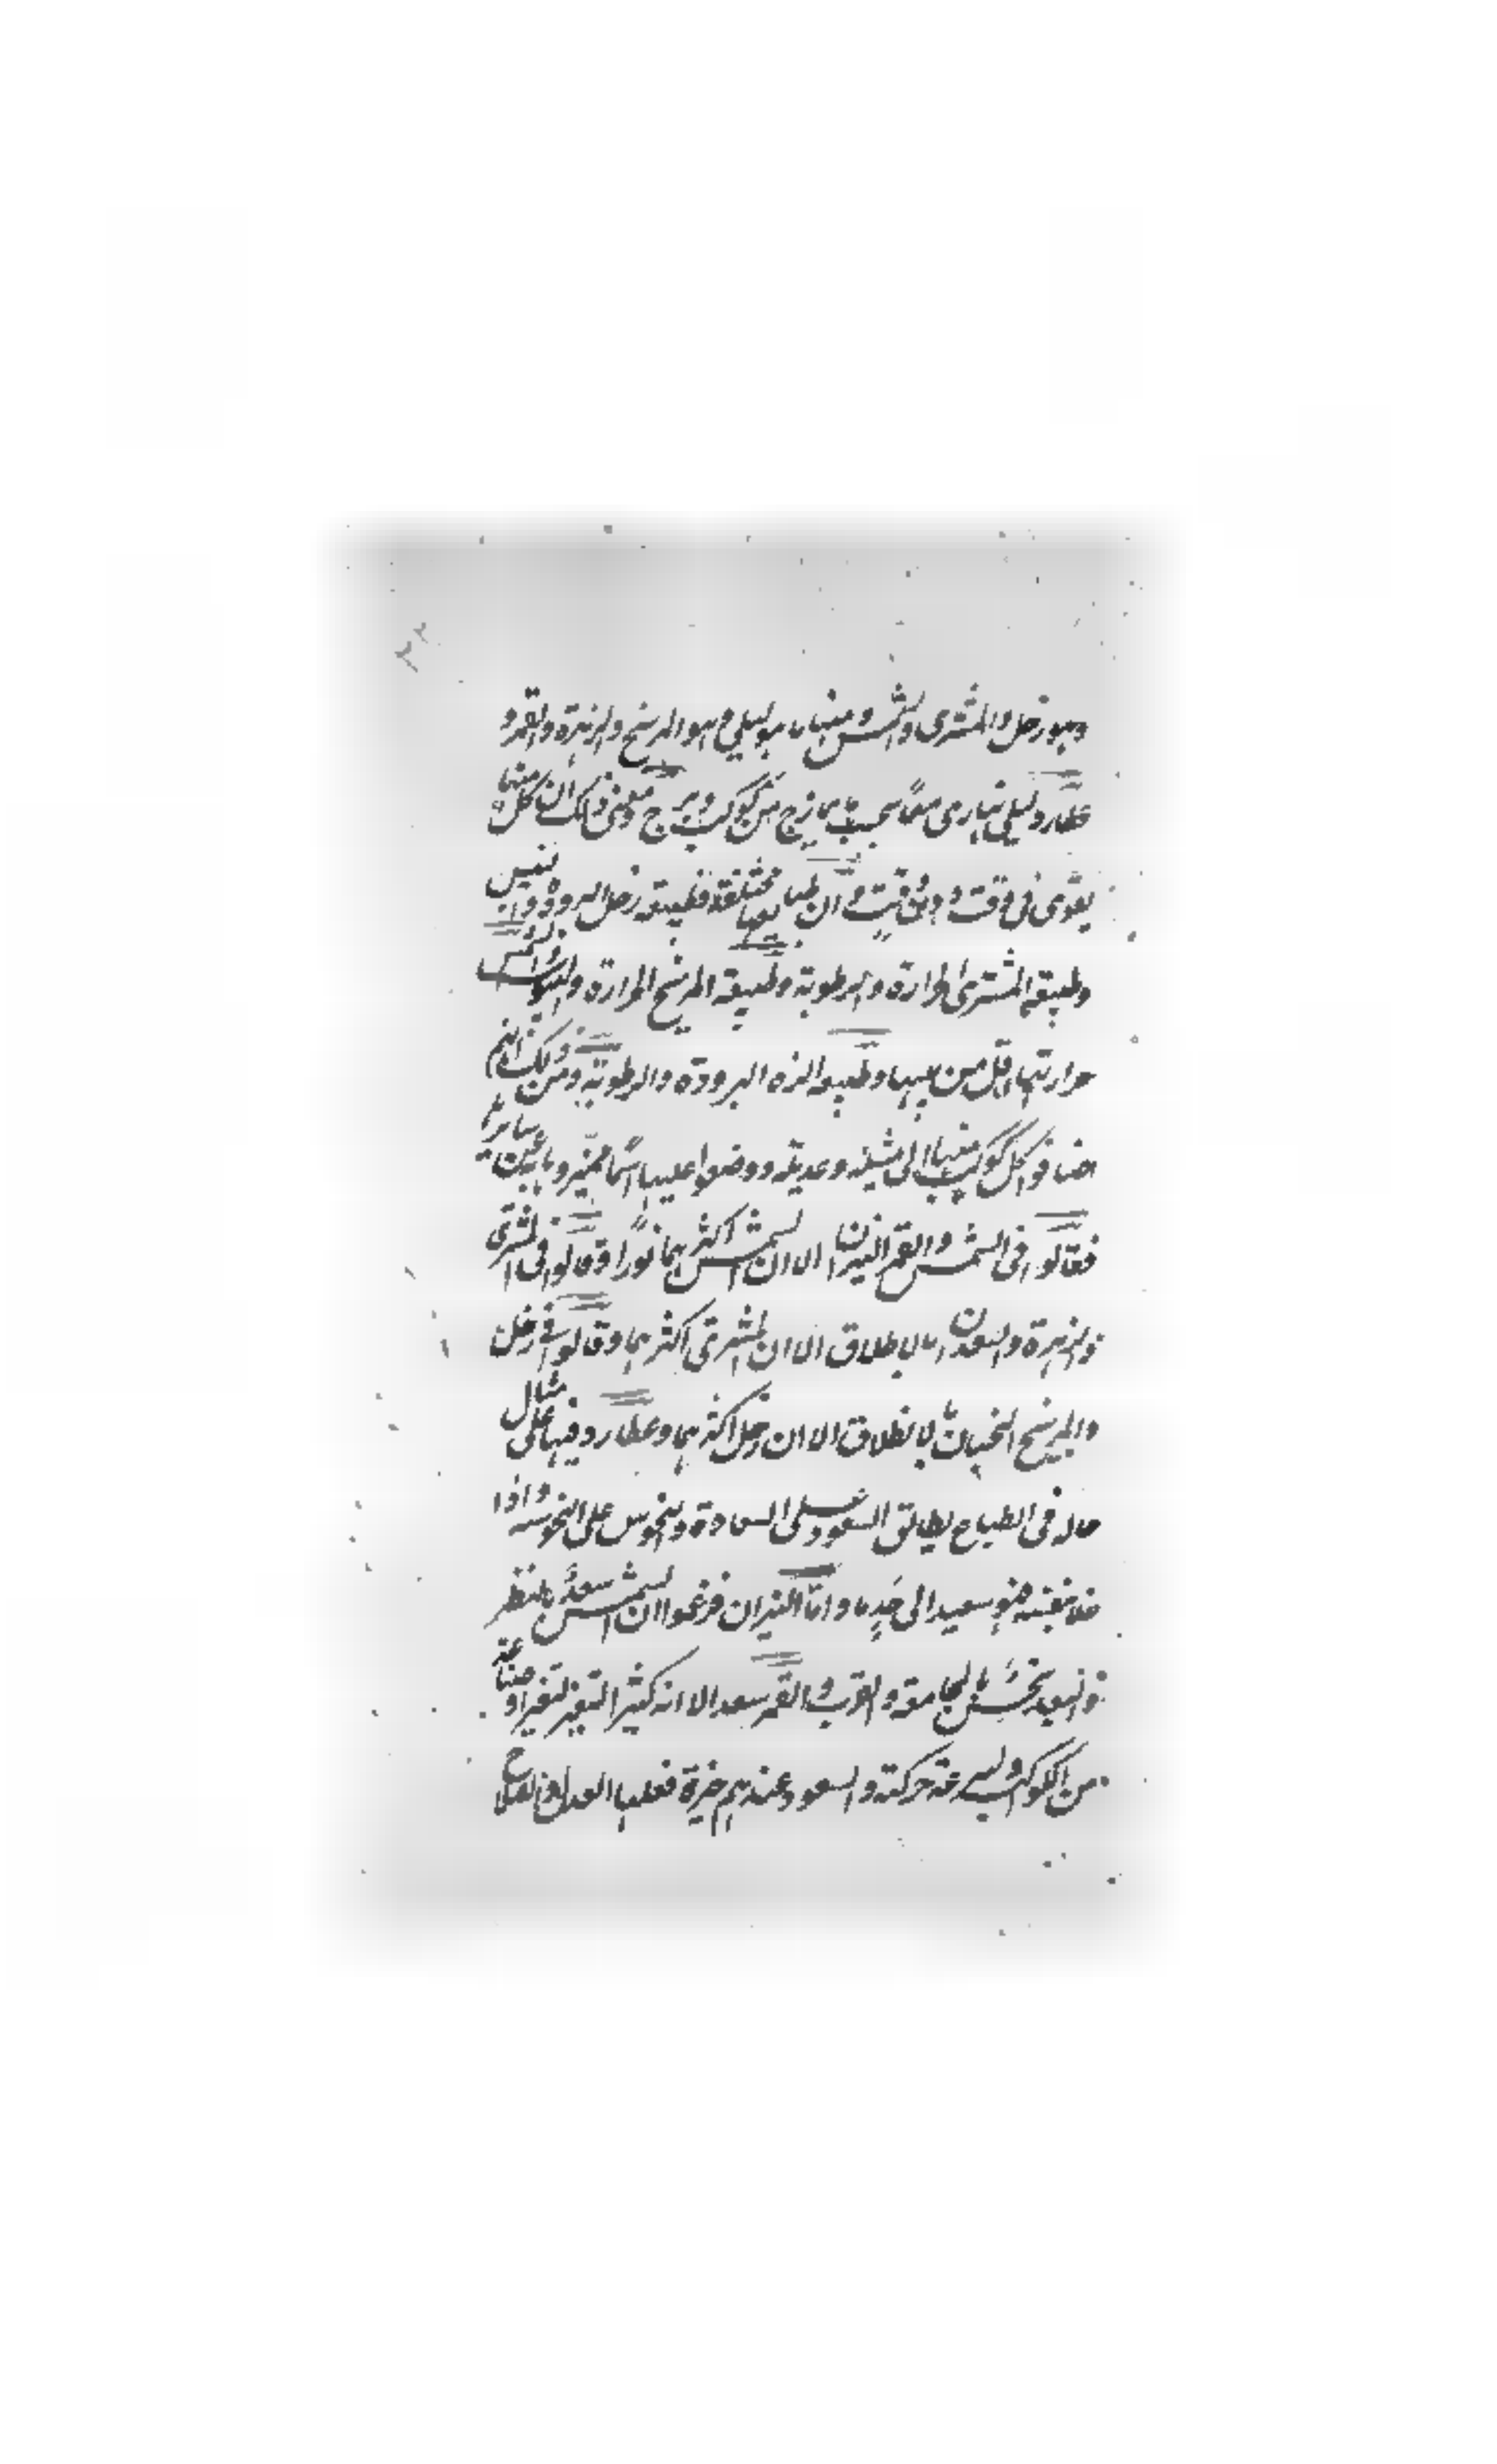 وهو زحل والمشترى والشمس ومنها ما هو ليلي وهو المريخ والزهرة والقمر و
عطارد ليلي نهارى معا بحسب ما يمازج من كوكب وبرج ومعنى ذلك أن كل منها
يقوى فى وقت دون وقت وان طبايعها مختلفة فطبيعة زحل البرودة واليبس
وطبيعة المشترى الحرارة والرطوبة وطبيعة المريخ الحرارة واليبوسة والشمس
حرارتها اقل من يبسها وطبيعة الزهرة البرودة والرطوبة ومن ذلك انهم
اضافوا كل كوكب منها الى شبهه وعديله ووضعوا عليها اسما مميزه عن سائرها
فقالوا فى الشمس والقمر النيران الا ان الشمس اكثرهما نورا وقالوا فى المشترى
والزهرة والسعدان بالاطلاق الا ان المشترى اكثرهما وقالوا فى زحل
والمريخ النحسان بالاطلاق الا ان زحل اكثرهما وعطارد وفيها على مثال
حاله فى الطباع يطابق السعود على السعادة والنحوس على النحوسة واذا
خلا بنفسه فهو سعيد الى حد ما واما النيران فزعموا ان الشمس سعد بالنظر
والبعد نحس بالمجامعة والقرب والقمر سعد الا انه كثير التغير لتغير اوضاعه
من الكواكب ولسرعة حركته والسعود عندهم خيرة فعلها العدل والصلاح